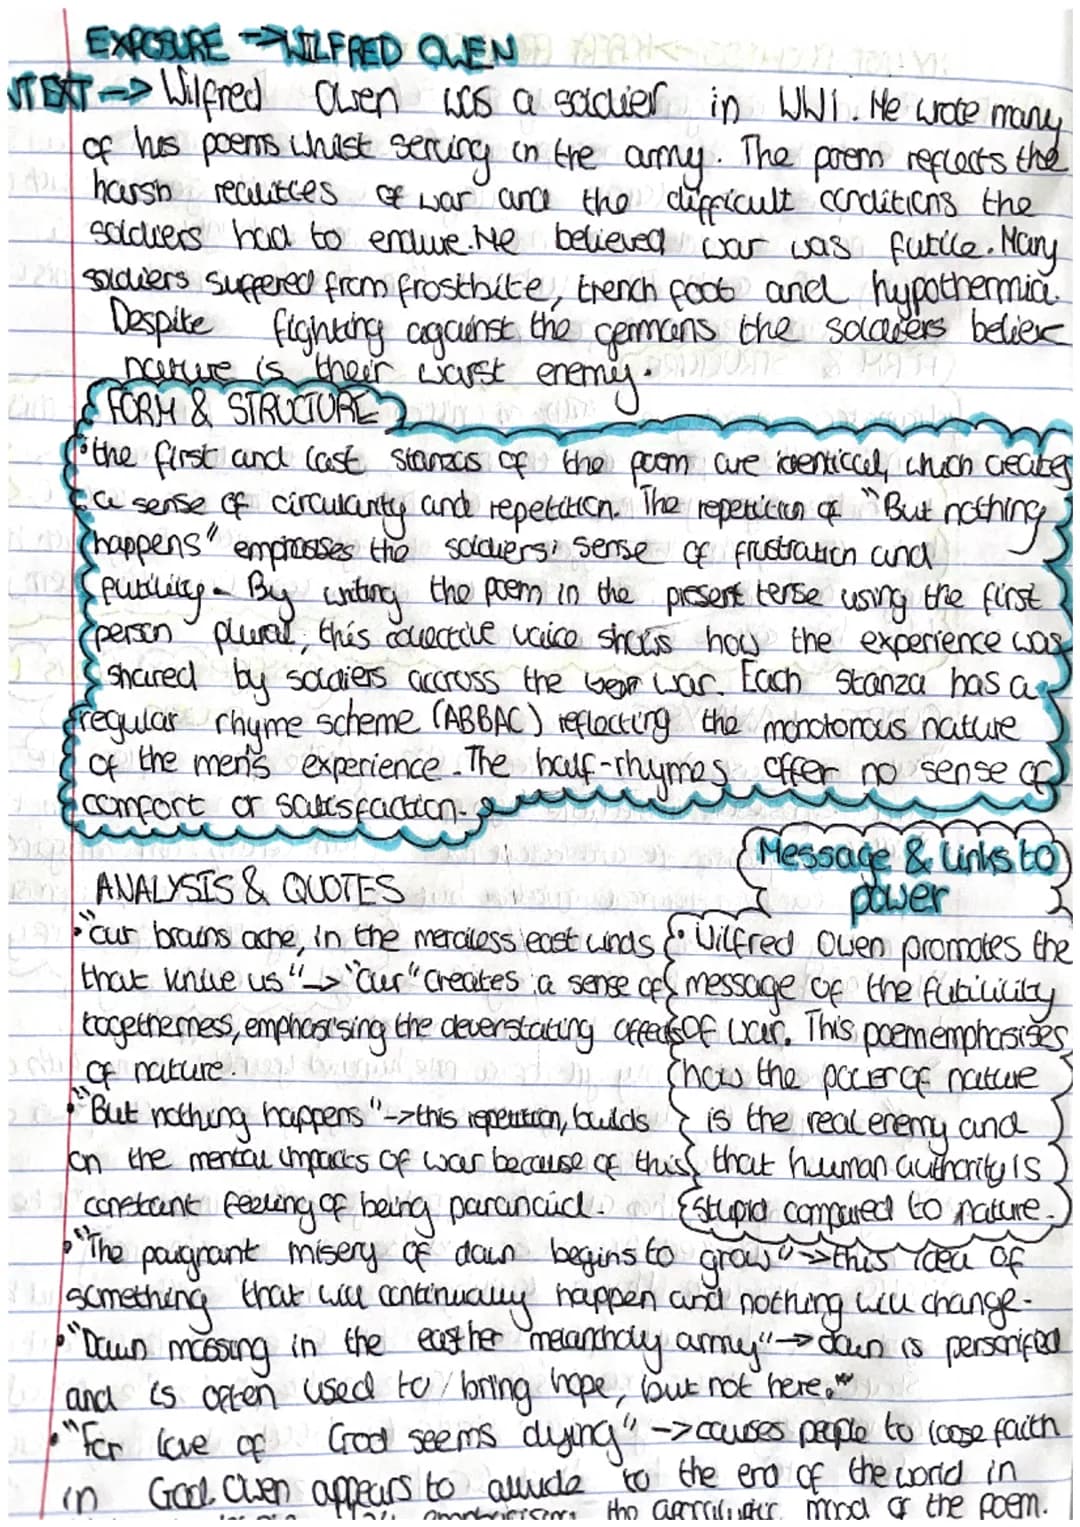 EXPOSURE → WILFRED OWEN
NTEXT --> Wilfred Owen was a soldier in WW1. He wrote many
of his poems whilst serving in the army. The poem reflects the
harsh realities of war and the difficult conditions the
soldiers had to endure. He believed war was futile. Many
soldiers suffered from frostbite, trench foot and hypothermia.
Despite fighting against the germans the soldiers believe
nature is their worst enemy.
FORM & STRUCTURE
• the first and last stanzas of the poem are identical, which creates
a sense of circularity and repetition. The repetition of "But nothing
happens" emphasises the soldiers' sense of frustration and
futility. By writing the poem in the present tense using the first
person plural, this collective voice shows how the experience was
shared by soldiers accross the war. Each stanza has a
regular rhyme scheme (ABBAC) reflecting the monotonous nature
of the men's experience. The half-rhymes offer no sense of
comfort or satisfaction.
Message & Links to
power
ANALYSIS & QUOTES
• "our brains ache, in the merciless east winds
that knive us" -> "our" creates a sense of
togetherness, emphasising the deverstating affects
of nature.
• "But nothing happens" -> this repetition, builds
on the mental impacts of war because of this
constant feeling of being paranoid.
• Wilfred Owen promotes the
message of the futilility
of war. This poem emphasises
how the power of nature
is the real enemy and
that human authority is
stupid compared to nature.
• "The poignant misery of dawn begins to grow" -> this idea of
something that will continually happen and nothing will change.
• "Dawn massing in the east her melancholy army" -> dawn is personified
and is often used to bring hope, but not here.
• "For love of God seems dying" -> causes people to loose faith
in God. Owen appears to allude to the end of the world in
emphasising the apocalyptic mood of the poem.